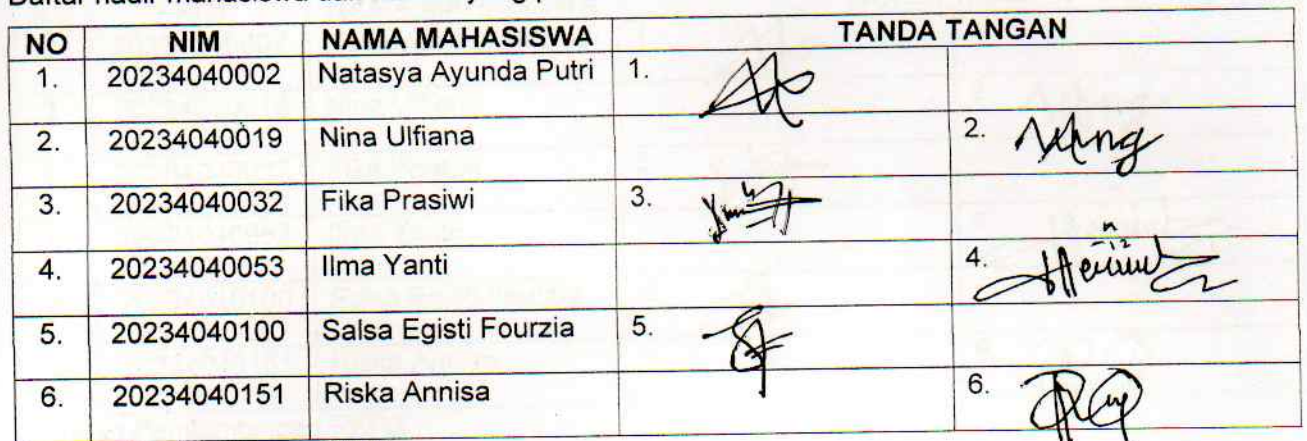 Daftar hadir mahasiswa
NO NIM NAMA MAHASISWA TANDA TANGAN
1. 20234040002 Natasya Ayunda Putri 1.
2. 20234040019 Nina Ulfiana 2.
3. 20234040032 Fika Prasiwi 3.
4. 20234040053 Ilma Yanti 4.
5. 20234040100 Salsa Egisti Fourzia 5.
6. 20234040151 Riska Annisa 6.